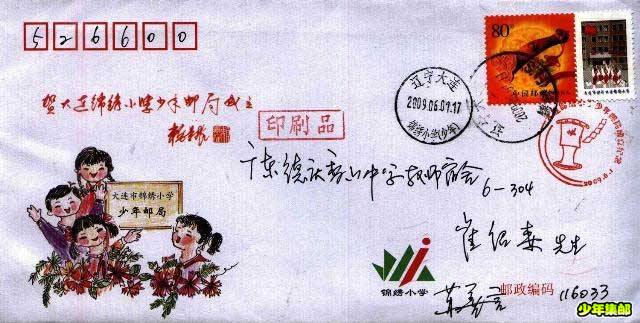 526600
80分
中国邮政
贺大连锦绣小学少年邮局成立
辽宁大连
2009.06.01.17
锦绣小学(少年)
印刷品
广东德庆香山中学教师宿舍
6-304
崔绍泰先生
大连市锦绣小学
少年邮局
锦绣小学
邮政编码 116033
少年集邮